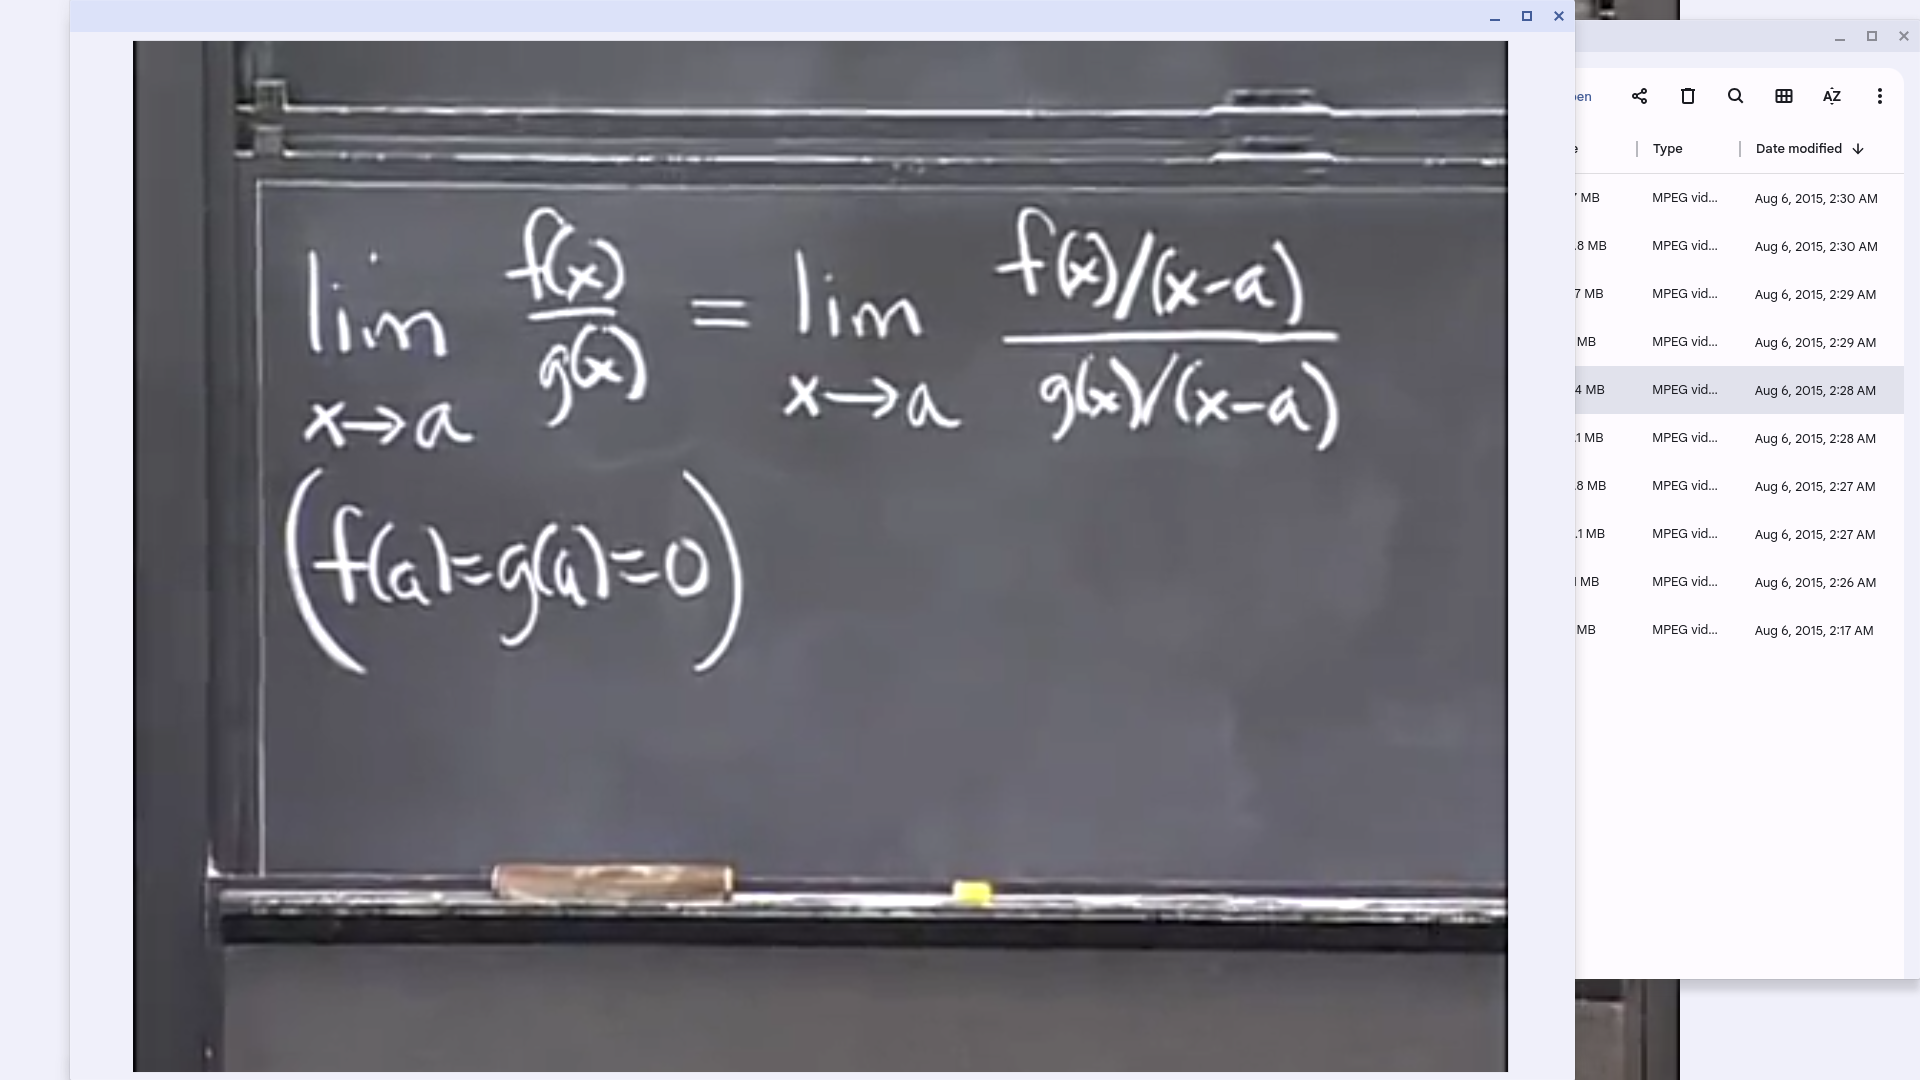 lim x→a f(x)/g(x) = lim x→a f(x)/(x-a) / g(x)/(x-a)
(f(a)=g(a)=0)
Type Date modified
MB MPEG vid... Aug 6, 2015, 2:30 AM
.8 MB MPEG vid... Aug 6, 2015, 2:30 AM
7 MB MPEG vid... Aug 6, 2015, 2:29 AM
MB MPEG vid... Aug 6, 2015, 2:29 AM
4 MB MPEG vid... Aug 6, 2015, 2:28 AM
.1 MB MPEG vid... Aug 6, 2015, 2:28 AM
.8 MB MPEG vid... Aug 6, 2015, 2:27 AM
.1 MB MPEG vid... Aug 6, 2015, 2:27 AM
MB MPEG vid... Aug 6, 2015, 2:26 AM
MB MPEG vid... Aug 6, 2015, 2:17 AM